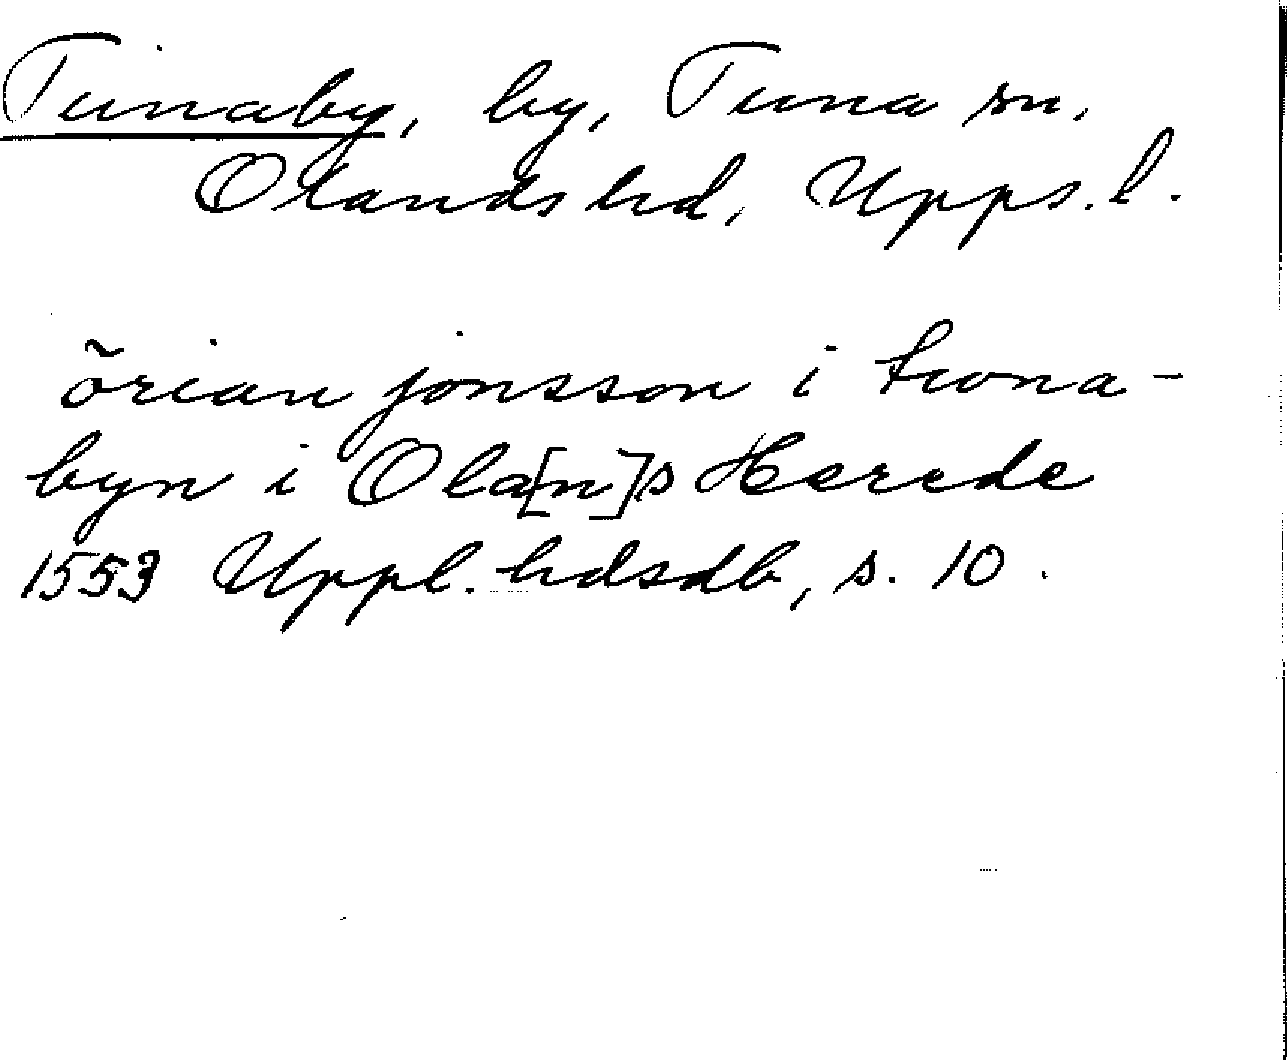 Tunaby, by, Tuna sn.
Olands hd, Upps. l.
õrian jonsson i twna-
byn i Ola[n]s Herede
1553 Uppl. hdsdb, s. 10.